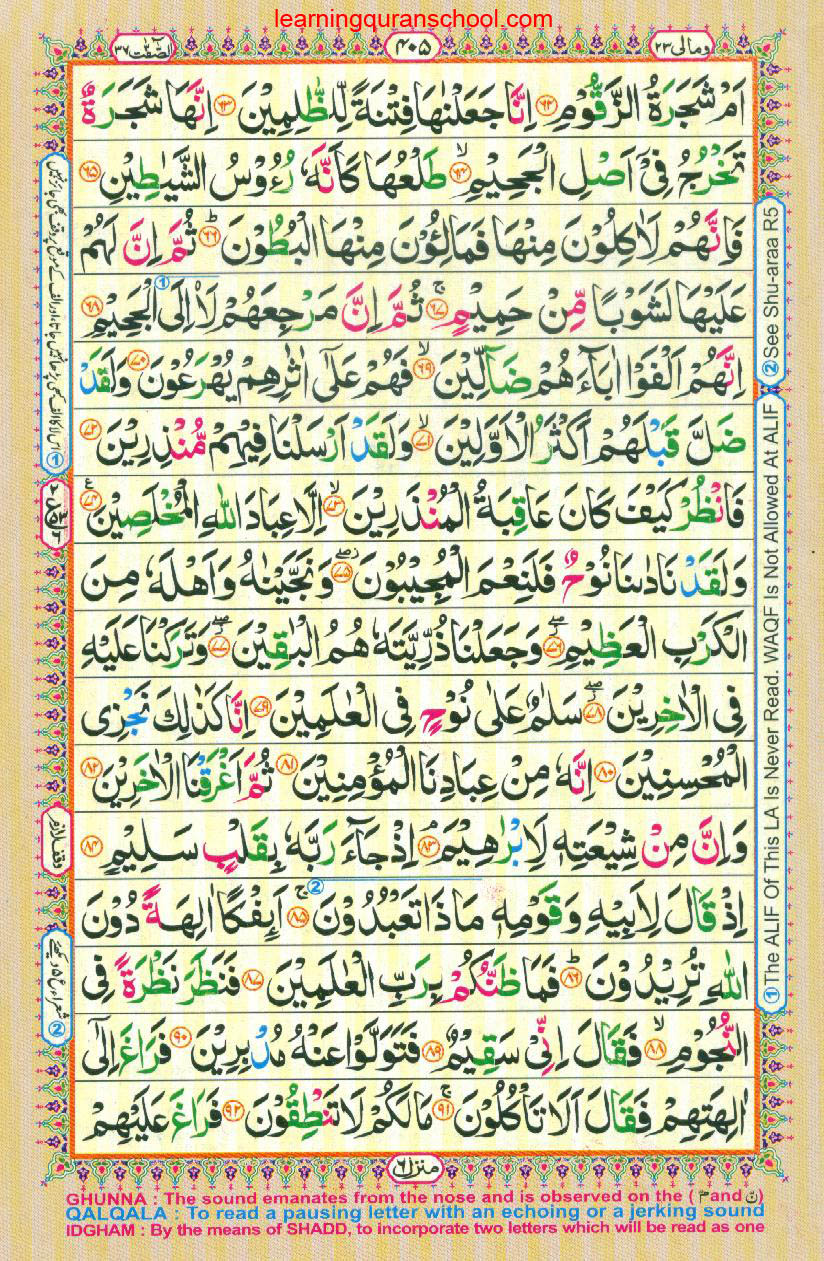 learningquranschool.com
وما لی ۲۳
۴۰۵
الصّٰفّٰت ۳۷
اَمْ شَجَرَةُ الزَّقُّوْمِ ۶۲ اِنَّا جَعَلْنٰهَا فِتْنَةً لِّلظّٰلِمِیْنَ ۶۳ اِنَّهَا شَجَرَةٌ
تَخْرُجُ فِیْۤ اَصْلِ الْجَحِیْمِ ۙ ۶۴ طَلْعُهَا كَاَنَّهٗ رُءُوْسُ الشَّیٰطِیْنِ ۶۵
فَاِنَّهُمْ لَاٰكِلُوْنَ مِنْهَا فَمَالِـُٔوْنَ مِنْهَا الْبُطُوْنَ ؕ ۶۶ ثُمَّ اِنَّ لَهُمْ
عَلَیْهَا لَشَوْبًا مِّنْ حَمِیْمٍ ۚ ۶۷ ثُمَّ اِنَّ مَرْجِعَهُمْ لَاۡاِلَی الْجَحِیْمِ ۶۸
اِنَّهُمْ اَلْفَوْا اٰبَآءَهُمْ ضَآلِّیْنَ ۙ ۶۹ فَهُمْ عَلٰۤی اٰثٰرِهِمْ یُهْرَعُوْنَ ۷۰ وَلَقَدْ
ضَلَّ قَبْلَهُمْ اَكْثَرُ الْاَوَّلِیْنَ ۙ ۷۱ وَلَقَدْ اَرْسَلْنَا فِیْهِمْ مُّنْذِرِیْنَ ۷۲
فَانْظُرْ كَیْفَ كَانَ عَاقِبَةُ الْمُنْذَرِیْنَ ۙ ۷۳ اِلَّا عِبَادَ اللّٰهِ الْمُخْلَصِیْنَ ۷۴ ع
وَلَقَدْ نَادٰىنَا نُوْحٌ فَلَنِعْمَ الْمُجِیْبُوْنَ ۷۵ وَنَجَّیْنٰهُ وَاَهْلَهٗ مِنَ
الْكَرْبِ الْعَظِیْمِ ۷۶ وَجَعَلْنَا ذُرِّیَّتَهٗ هُمُ الْبٰقِیْنَ ۷۷ وَتَرَكْنَا عَلَیْهِ
فِی الْاٰخِرِیْنَ ۷۸ سَلٰمٌ عَلٰی نُوْحٍ فِی الْعٰلَمِیْنَ ۷۹ اِنَّا كَذٰلِكَ نَجْزِی
الْمُحْسِنِیْنَ ۸۰ اِنَّهٗ مِنْ عِبَادِنَا الْمُؤْمِنِیْنَ ۸۱ ثُمَّ اَغْرَقْنَا الْاٰخَرِیْنَ ۸۲
وَاِنَّ مِنْ شِیْعَتِهٖ لَاِبْرٰهِیْمَ ۘ ۸۳ اِذْ جَآءَ رَبَّهٗ بِقَلْبٍ سَلِیْمٍ ۸۴
اِذْ قَالَ لِاَبِیْهِ وَقَوْمِهٖ مَاذَا تَعْبُدُوْنَ ۚ ۸۵ اَىِٕفْكًا اٰلِهَةً دُوْنَ
اللّٰهِ تُرِیْدُوْنَ ؕ ۸۶ فَمَا ظَنُّكُمْ بِرَبِّ الْعٰلَمِیْنَ ۸۷ فَنَظَرَ نَظْرَةً فِی
النُّجُوْمِ ۙ ۸۸ فَقَالَ اِنِّیْ سَقِیْمٌ ۸۹ فَتَوَلَّوْا عَنْهُ مُدْبِرِیْنَ ۹۰ فَرَاغَ اِلٰۤی
اٰلِهَتِهِمْ فَقَالَ اَلَا تَاْكُلُوْنَ ۚ ۹۱ مَا لَكُمْ لَا تَنْطِقُوْنَ ۹۲ فَرَاغَ عَلَیْهِمْ
① The ALIF Of This LA Is Never Read. WAQF Is Not Allowed At ALIF
② See Shu-araa R5
وقف لازم
منزل ۶
GHUNNA : The sound emanates from the nose and is observed on the ( مّ and نّ )
QALQALA : To read a pausing letter with an echoing or a jerking sound
IDGHAM : By the means of SHADD, to incorporate two letters which will be read as one